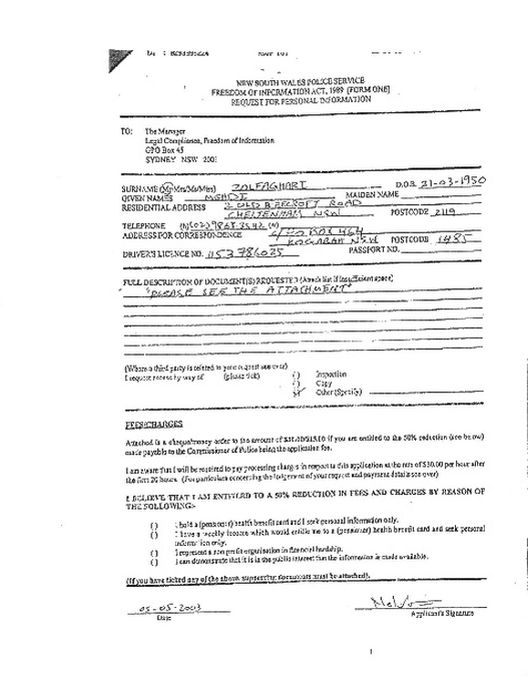 NEW SOUTH WALES POLICE SERVICE
FREEDOM OF INFORMATION ACT, 1989 (FORM ONE)
REQUEST FOR PERSONAL INFORMATION
TO: The Manager
Legal Compliance, Freedom of Information
GPO Box 45
SYDNEY NSW 2001
SURNAME (Mr/Mrs/Ms/Miss) ZOLFAGHARI D.O.B. 21-03-1950
GIVEN NAMES MEHDI MAIDEN NAME
RESIDENTIAL ADDRESS 2 OLD BEECROFT ROAD
CHELTENHAM NSW POSTCODE 2119
TELEPHONE (H) (02) (W)
ADDRESS FOR CORRESPONDENCE BOX 464
KOGARAH NSW POSTCODE 1485
DRIVER'S LICENCE NO. PASSPORT NO.
FULL DESCRIPTION OF DOCUMENT(S) REQUESTED (Attach list if insufficient space)
"PLEASE SEE THE ATTACHMENT"
(Where a third party is related to your request see over)
I request access by way of (please tick)
( ) Inspection
( ) Copy
Other (Specify)
FEES/CHARGES
Attached is a cheque/money order to the amount of $30.00/$15.00 if you are entitled to the 50% reduction (see below)
made payable to the Commissioner of Police being the application fee.
I am aware that I will be required to pay processing charges in respect to this application at the rate of $30.00 per hour after
the first 20 hours. (For particulars concerning the lodgement of your request and payment details see over)
I BELIEVE THAT I AM ENTITLED TO A 50% REDUCTION IN FEES AND CHARGES BY REASON OF
THE FOLLOWING:-
( ) I hold a (pensioner) health benefit card and I seek personal information only.
( ) I have a weekly income which would entitle me to a (pensioner) health benefit card and seek personal
information only.
( ) I represent a non profit organisation in financial hardship.
( ) I can demonstrate that it is in the public interest that the information is made available.
(If you have ticked any of the above supporting documents must be attached).
05-05-2003
Date Applicant's Signature
1